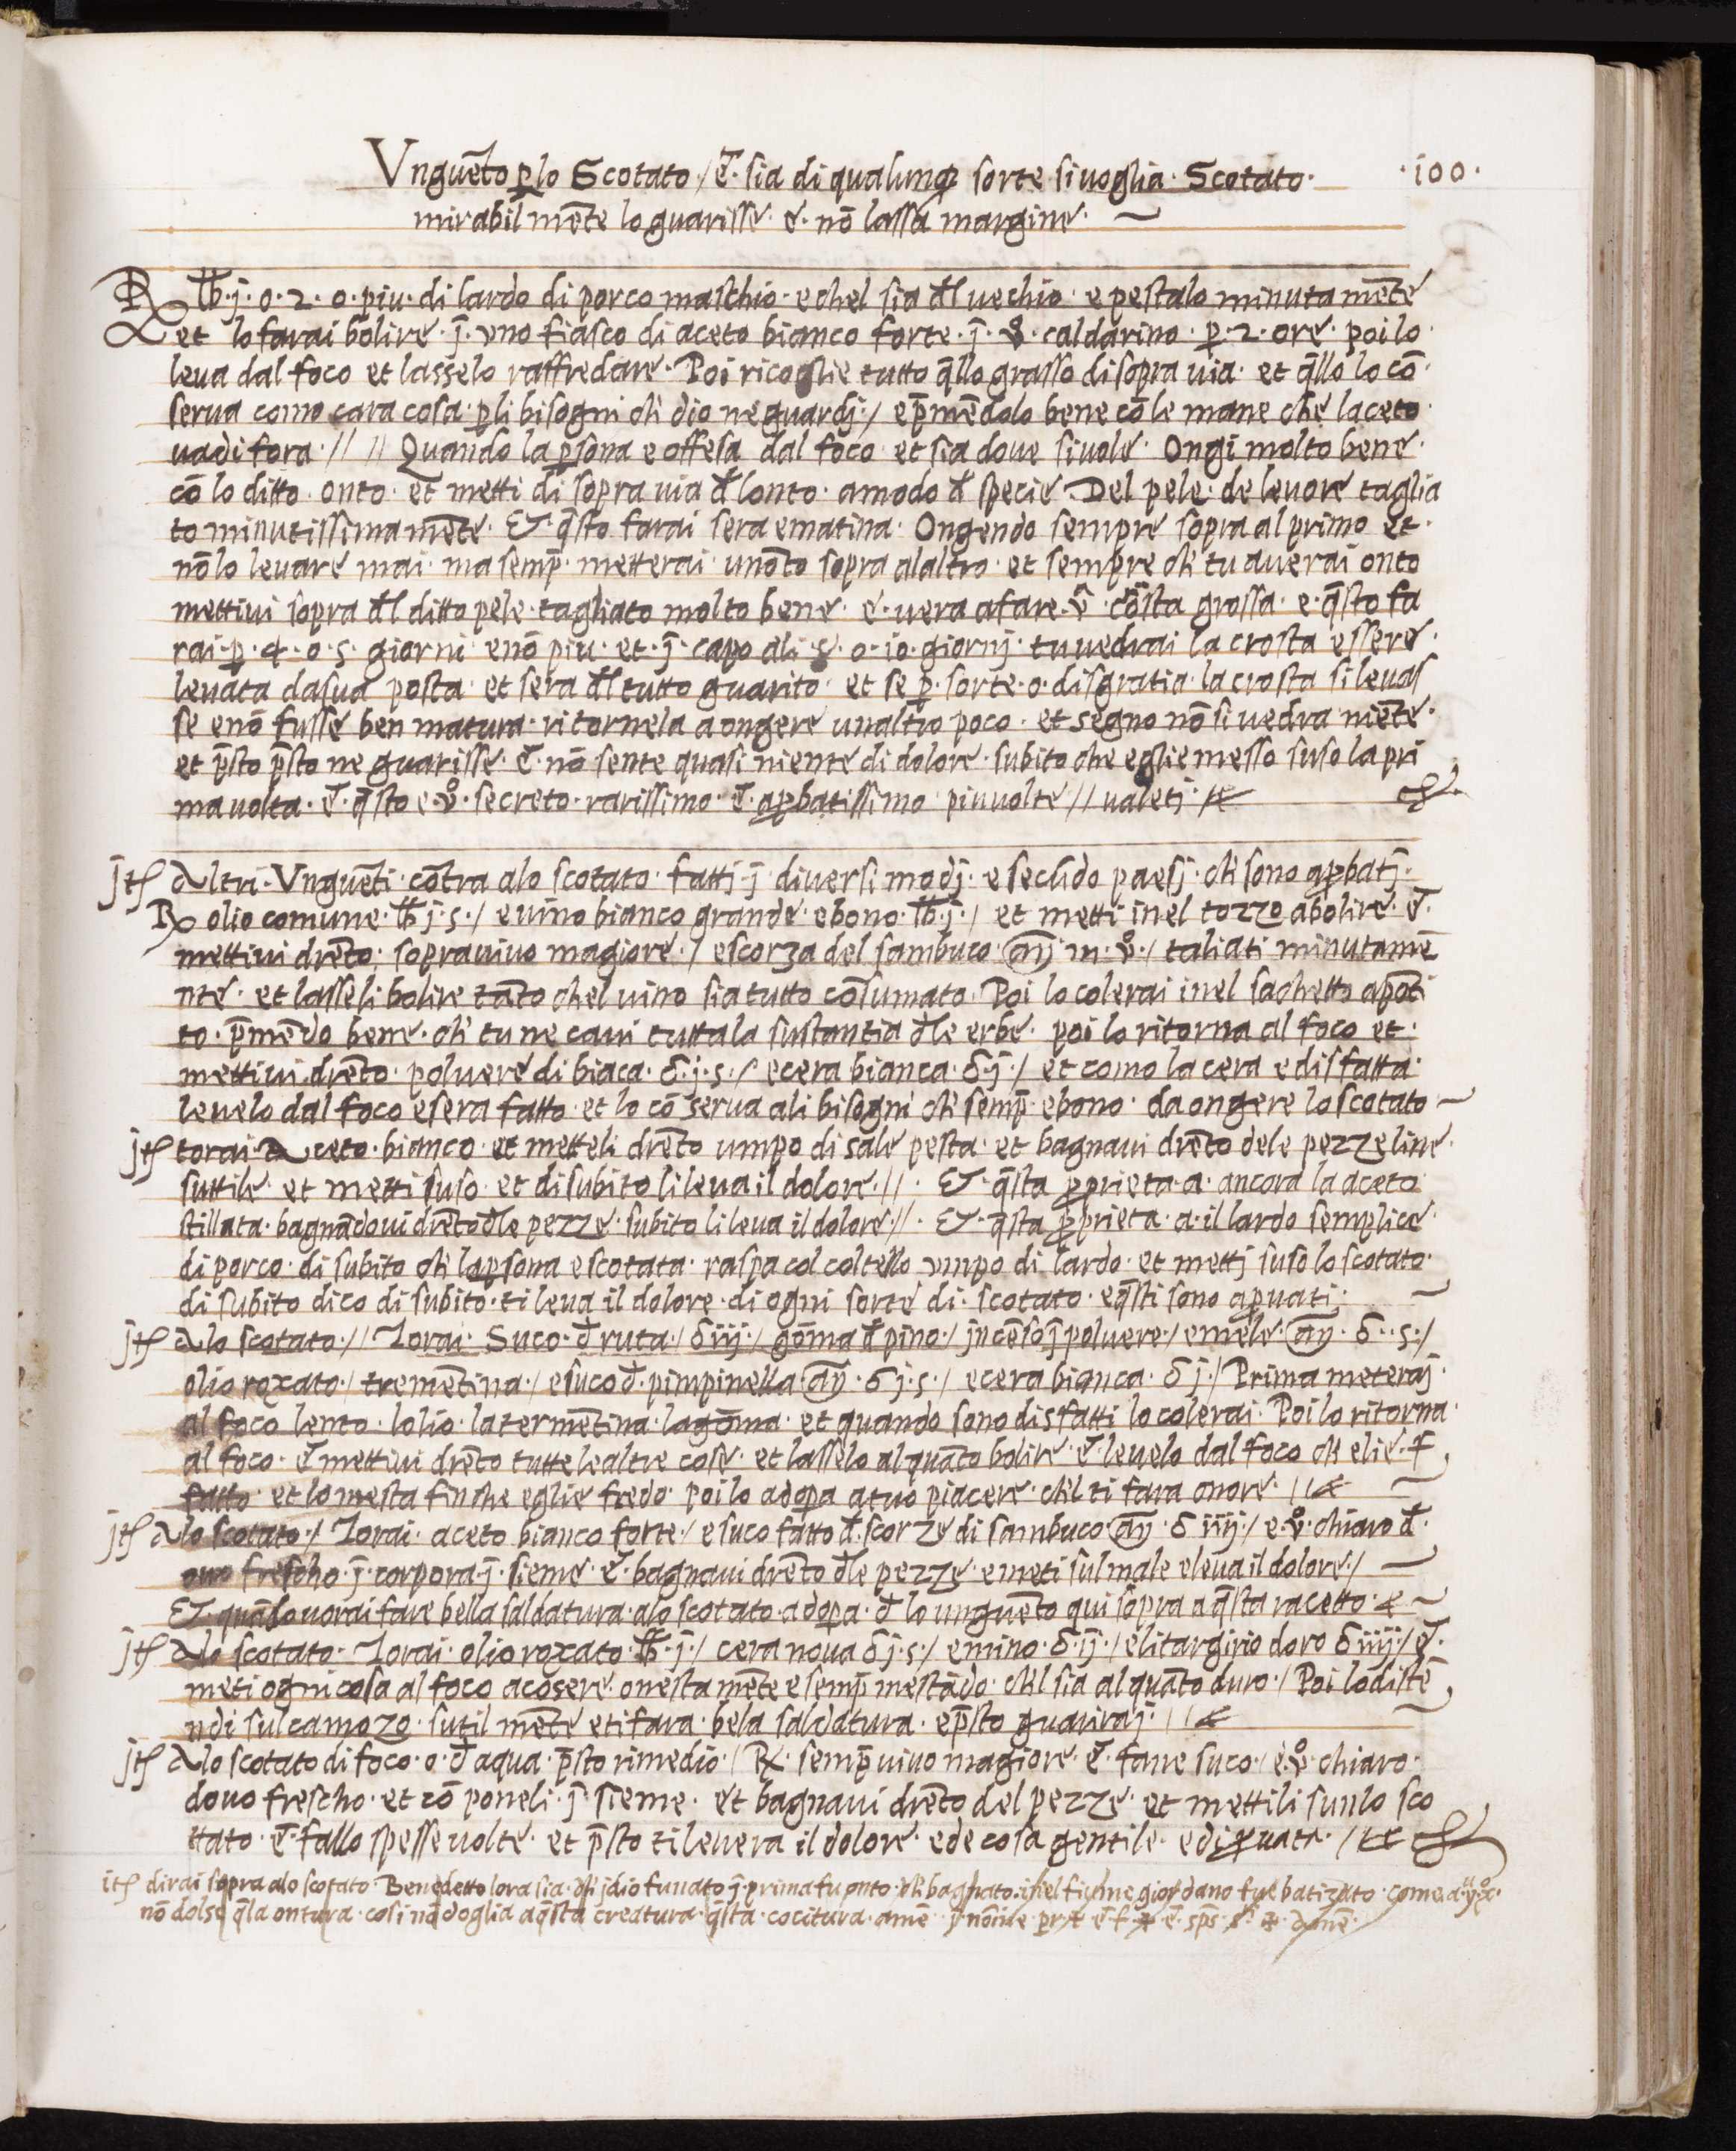 Vnguēto p̲ lo Scotato / ē. sia di qualunq̨ sorte si uoglia. Scotato.
.100.
mirabil mēte lo guarisse. e. nō lassa margine.
℞ ℔.j.o.2.o.piu. di lardo di porco maschio. e chel sia đl uechio. e pestalo minuta mēte
et lo farai bolire. j̄. vno fiasco di aceto bianco forte. j̄. v̊. caldarino. p̲. 2. ore. poi lo.
leua dal foco et lasselo raffredare. Poi ricoglie tutto q̄llo grasso di sopra uia. et q̄llo lo cō.
serua como cara cosa. p̲ li bisogni ch' dio ne guardj. / e p̄mēdolo bene cō le mane che laceto.
uadi fora. // // Quando la p̲sona e offesa dal foco. et sia doue si uole. Ongi molto bene.
cō lo ditto. onto. et metti di sopra uia đ lonto. a modo đ specie. Del pele. de leuore taglia
to minutissima mēte. Et q̄sto farai sera e matina. Ongendo sempre sopra al primo et.
nō lo leuare mai. ma semp̄. metterai. unōto sopra alaltro. et sempre ch' tu auerai onto
mettiui sopra đl ditto pele. tagliato molto bene. e. uera a fare. v̄. crōsta grossa. e. q̄sto fa
rai. p̲. 4. o. 5. giorni e nō piu. et. j̄. capo ali. 8. o. 10. giornj. tu uedrai la crosta essere.
leuata da sua posta. et sera đl tutto guarito. et se p̲. sorte. o. disgratia. la crosta si leuas
se e nō fusse ben matura. ritornela a ongere unaltro poco. et segno nō si uedra niēte.
et p̄sto p̄sto ne guarisse. ē. nō sente quasi niente di dolore. subito che eglie messo suso la pri
ma uolta. ē. q̄sto e. v̊. secreto. rarissimo. ē. ap̲batissimo piu uolte // ualetj.
jtʃ Altri. Vnguēti. cōtra alo scotato. fattj. j̄ diuersi modj. e secūdo paesj. ch' sono ap̲batj.
℞ olio comune. ℔ j. s. / e uino bianco grande. e bono. ℔. j. / et metti inel tozzo a bolire. ē.
mettiui drēto. sopra uiuo magiore. / e scorza del sambuco. aȳ m. v̊. / taliati minutamē
nte. et lasseli bolire tāto chel uino sia tutto cōsumato. Poi lo colerai inel sachetto apōti
to. p̄mēdo bene. ch' tu ne caui tutta la sustantia đle erbe. poi lo ritorna al foco et.
mettiui drēto. poluere di biaca. δ. j. s. / e cera bianca. δ. j. / et como la cera e disfatta.
leuelo dal foco e sera fatto. et lo cō serua ali bisogni ch' semp̄. e bono. da ongere lo scotato
jtʃ torai. Aceto. bianco. et metteli drēto unpo di sale pesta. et bagnaui drēto dele pezze line.
suttile. et metti suso. et di subito li leua il dolore. // . Et. q̄sta p̲prieta. a. ancora la aceto
stillata. bagnādoui drēto đle pezze. subito li leua il dolore. //. Et. q̄sta p̲prieta. a. il lardo semplice.
di porco. di subito ch' la p̲sona e scotata. raspa col coltello vnpo di lardo. et mettj suso lo scotato.
di subito dico di subito. ti leua il dolore. di ogni sorte di. scotato. e q̄sti sono ap̲uati.
jtʃ Alo scotato. // Torai. Suco. đ ruta. / δ iij. / gōma đ pino. / jncēso j̄ poluere. / e mele. aȳ. δ. .s. /
olio roxato. / tremētina. / e suco đ. pimpinella aȳ. δ j. s. / e cera bianca. δ j. / Prima meteraj.
al foco lento. lolio. la termētina. la gōma. et quando sono disfatti lo colerai. Poi lo ritorna.
al foco. ē mettiui drēto tutte le altre cose. et lasselo al quāto bolire. ē. leuelo dal foco ch' elie. f
fatto. et lo mesta fin che eglie fredo. poi lo adop̲a a tuo piacere. ch'l ti fara onore.
jtʃ Alo scotato. / Torai. aceto bianco forte. / e suco fatto đ. scorze di sambuco aȳ. δ iiij. / e. v̊. chiaro đ.
ouo frescho. j̄. corpora. j̄. sieme. ē. bagnaui drēto đle pezze. e meti sul male e leua il dolore. /
Et. quādo uorai fare bella saldatura. alo scotato. adop̲a. đ lo unguēto qui sopra a q̄sta racetto.
jtʃ Alo scotato. Torai. olio roxato. ℔. j. / cera noua δ j. s. / e mino. δ. ij. / e litargirio doro δ iiij. / ē.
meti ogni cosa al foco a cosere. onesta mēte e semp̄ mestādo. ch'l sia al quāto duro. / Poi lo distē
ndi sul camozo. sutil mēte e ti fara. bela saldatura. e p̄sto guariraj.
jtʃ Alo scotato di foco. o. đ aqua. p̄sto rimedio. / ℞. semp̄ uiuo magiore. ē. fane suco. / e. v̊. chiaro.
douo frescho. et cō poneli. j̄. sieme. et bagnaui drēto del pezze. et mettili sun lo sco
ttato. ē. fallo spesse uolte. et p̄sto ti leuera il dolore. ed e cosa gentile. e di p̲uata.
itʃ dirai sopra alo scotato. Benedetto lora sia. ch' jdio fu nato j̄. prima fu onto. ch' bagnato. inel fiume giordano fue batizato. come. a.
nō dolse q̄la ontura. cosi nō doglia a q̄sta creatura. q̄sta. cocitura. amē. j̄ nōine pr̄is ē. f. ✠ ē. sp̄s. s̄ⁱ. ✠. Amē.